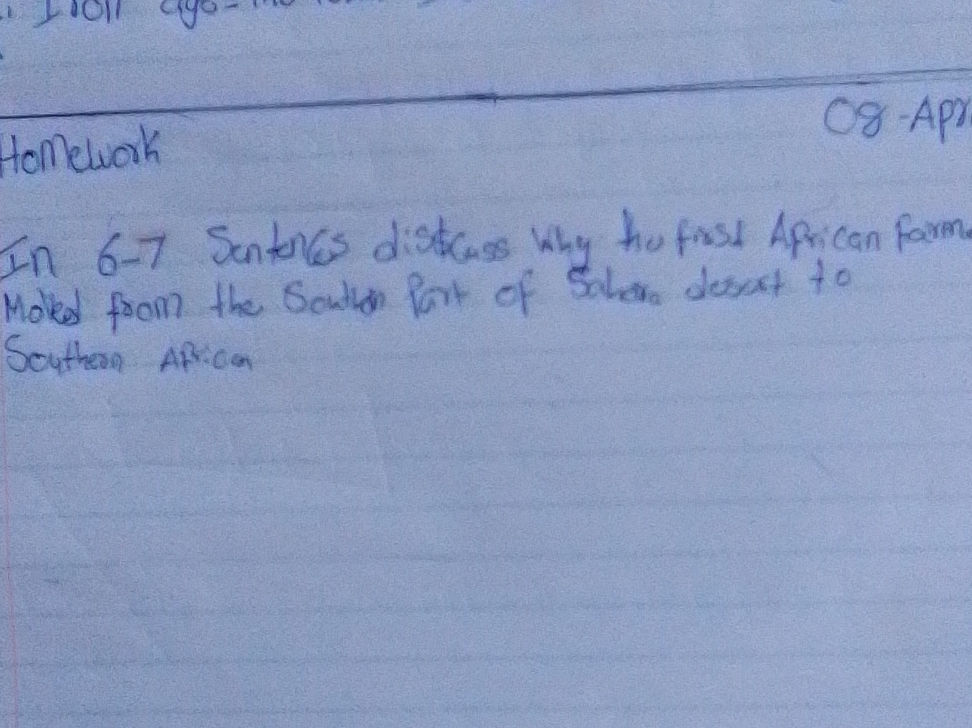 Iron age-
08-Apr
Homework
In 6-7 Sentences discuss why the first African Farme
Moved from the Southern Part of Sahara desert to
Southern African